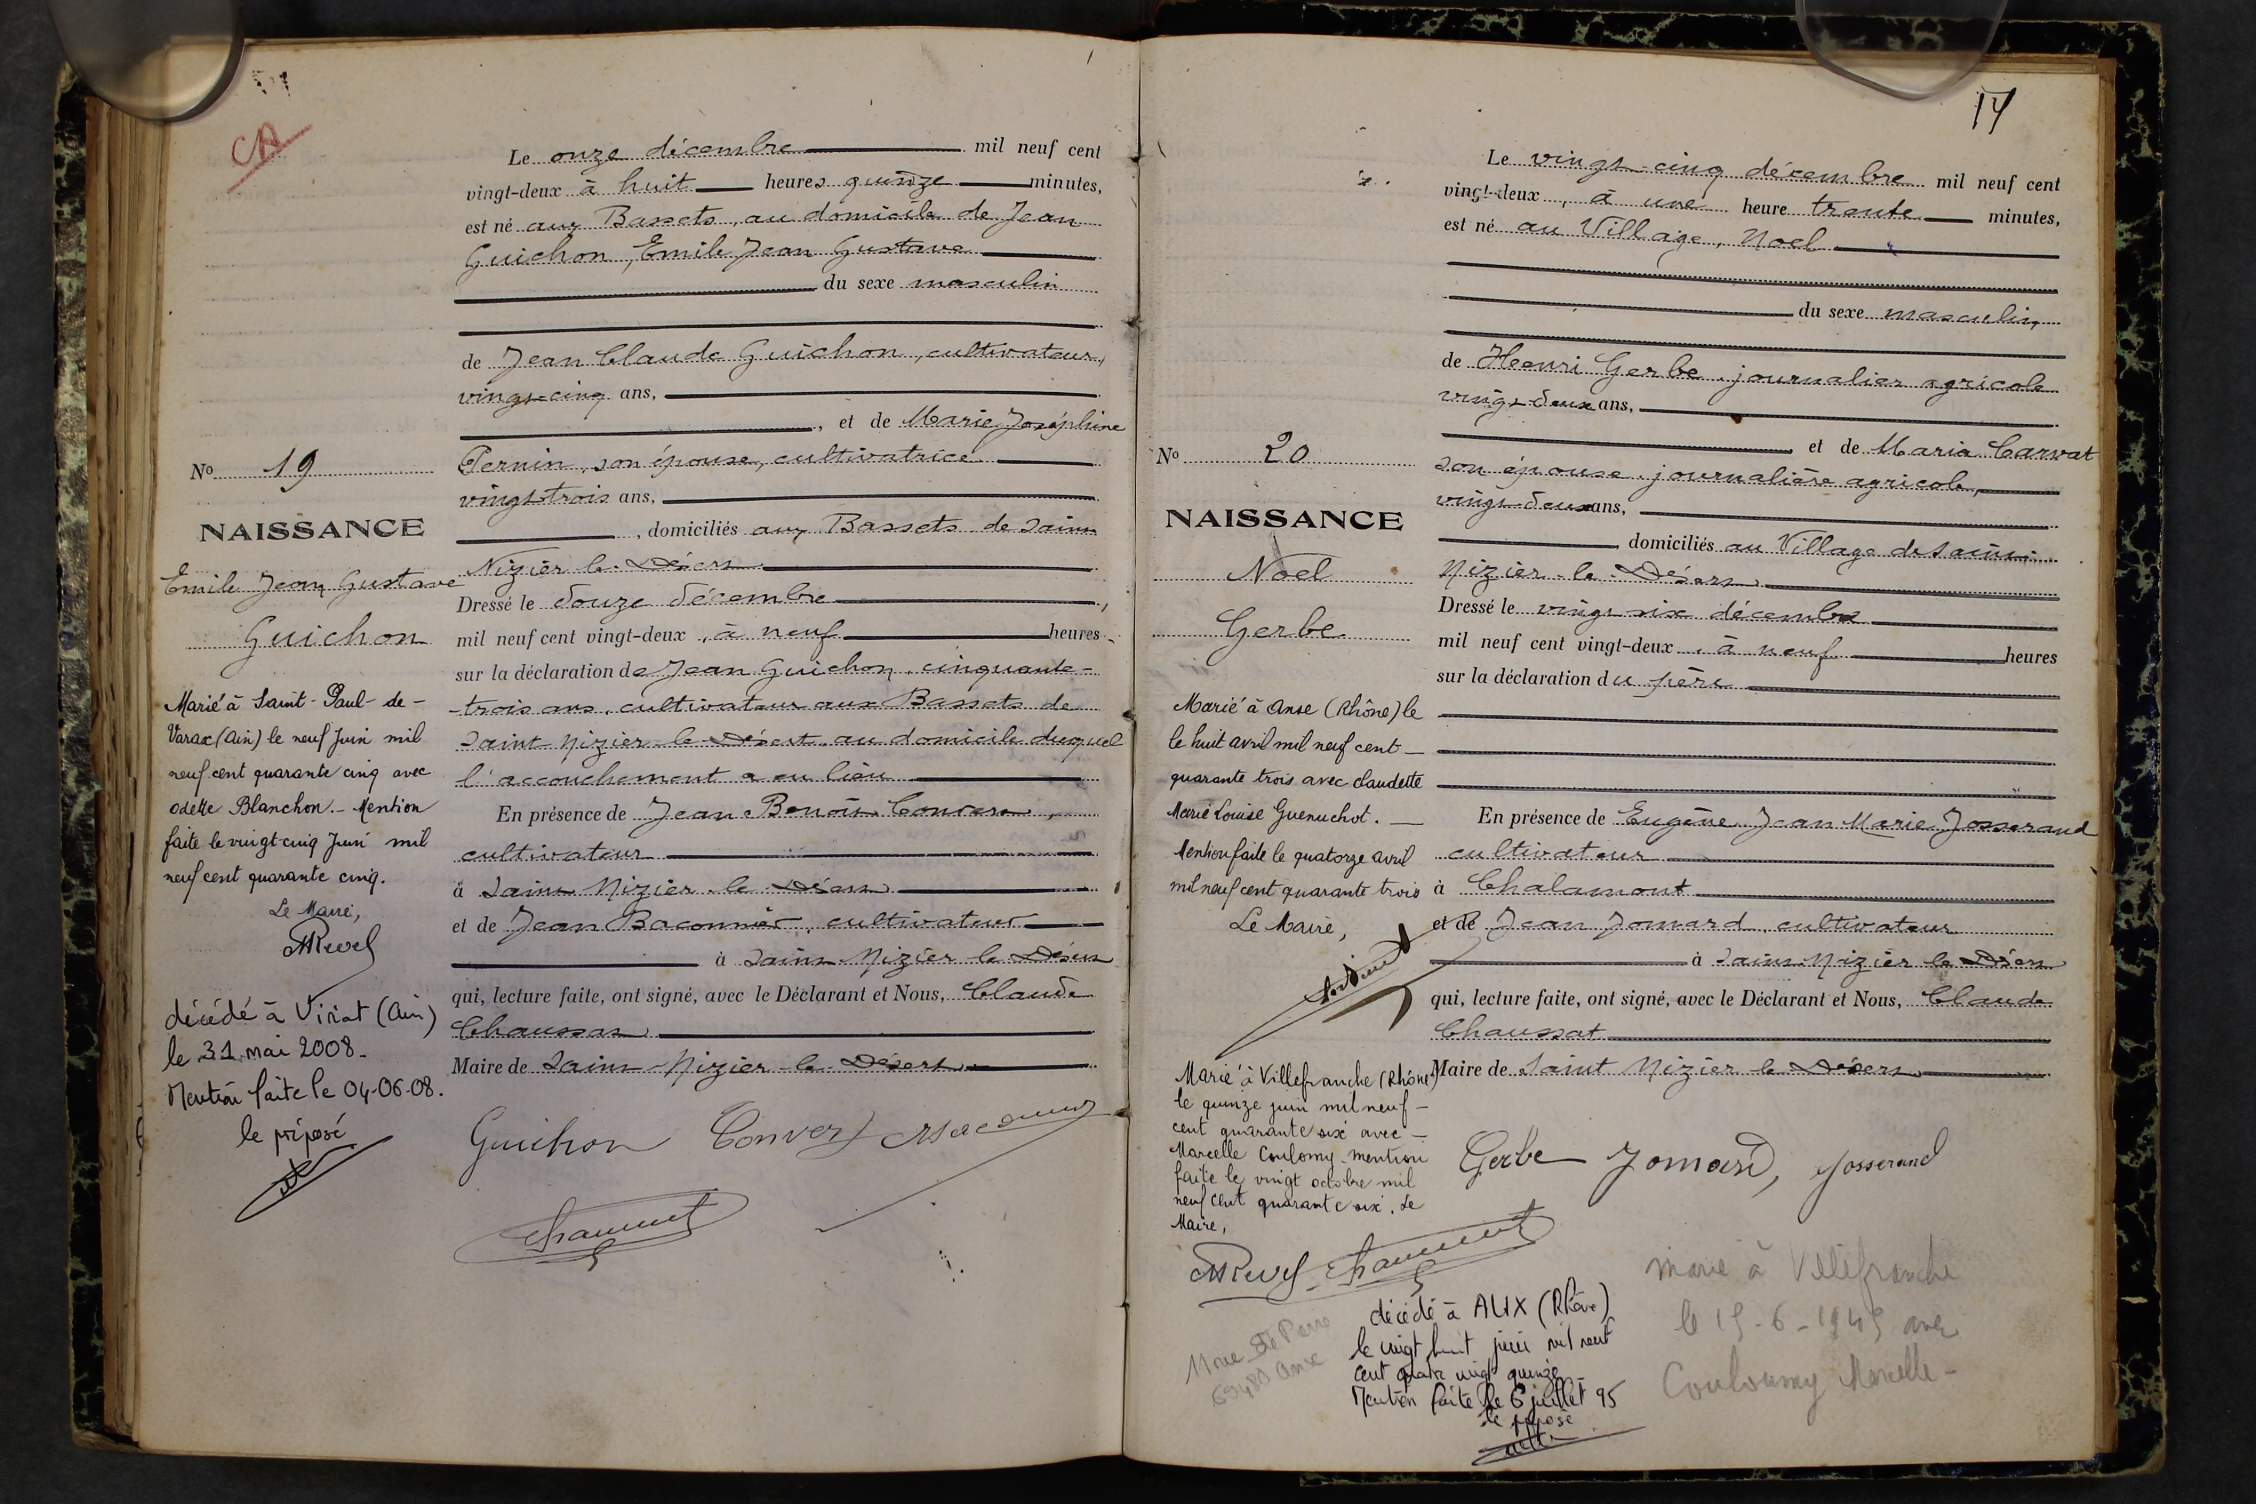 CA
Le onze décembre mil neuf cent
vingt-deux à huit heures quinze minutes,
est né aux Bassets, au domicile de Jean
Guichon, Emile Jean Gustave
du sexe masculin
de Jean Claude Guichon, cultivateur,
vingt-cinq ans,
, et de Marie Joséphine
Pernin, son épouse, cultivatrice
vingt-trois ans,
, domiciliés aux Bassets de Saint
Nizier le Désert
Dressé le douze décembre
mil neuf cent vingt-deux, à neuf heures
sur la déclaration de Jean Guichon, cinquante-
trois ans, cultivateur aux Bassets de
Saint Nizier le Désert, au domicile duquel
l'accouchement a eu lieu
En présence de Jean Benoit Convert,
cultivateur
à Saint Nizier le Désert
et de Jean Baconnier, cultivateur
à Saint Nizier le Désert
qui, lecture faite, ont signé, avec le Déclarant et Nous, Claude
Chaussat
Maire de Saint-Nizier-le-Désert
Guichon Convert
No 19
NAISSANCE
Emile Jean Gustave
Guichon
Marié à Saint-Paul-de-
Varax (Ain) le neuf Juin mil
neuf cent quarante cinq avec
Odette Blanchon. - Mention
faite le vingt cinq Juin mil
neuf cent quarante cinq.
Le Maire,
décédé à Viriat (Ain)
le 31 mai 2008 -
Mention faite le 04-06-08.
le préposé
17
Le vingt-cinq décembre mil neuf cent
vingt-deux, à une heure trente minutes,
est né au Village, Noel
du sexe masculin,
de Henri Gerbe, journalier agricole
vingt-deux ans,
et de Maria Carvat
son épouse, journalière agricole,
vingt-deux ans,
domiciliés au Village de Saint-
Nizier-le-Désert
Dressé le vingt-six décembre
mil neuf cent vingt-deux, à neuf heures
sur la déclaration du père
En présence de Eugène Jean Marie Josserand
cultivateur
à Chalamont
et de Jean Jomard, cultivateur
à Saint-Nizier le Désert
qui, lecture faite, ont signé, avec le Déclarant et Nous, Claude
Chaussat
Maire de Saint Nizier le Désert
Gerbe Jomard, Josserand
No 20
NAISSANCE
Noel
Gerbe
Marié à Anse (Rhône) le
le huit avril mil neuf cent
quarante trois avec Claudette
Marie Louise Guenuchot. -
Mention faite le quatorze avril
mil neuf cent quarante trois
Le Maire,
Marié à Villefranche (Rhône)
le quinze juin mil neuf -
cent quarante six avec -
Marcelle Coulomy - mention
faite le vingt octobre mil
neuf cent quarante six. Le
Maire,
décédé à ALIX (Rhône)
le vingt huit juin mil neuf
cent quatre vingt quinze
Mention faite le 6 juillet 95
le préposé
69480 Anse
marié à Villefranche
le 15-6-1945 avec
Couloumy Marcelle -